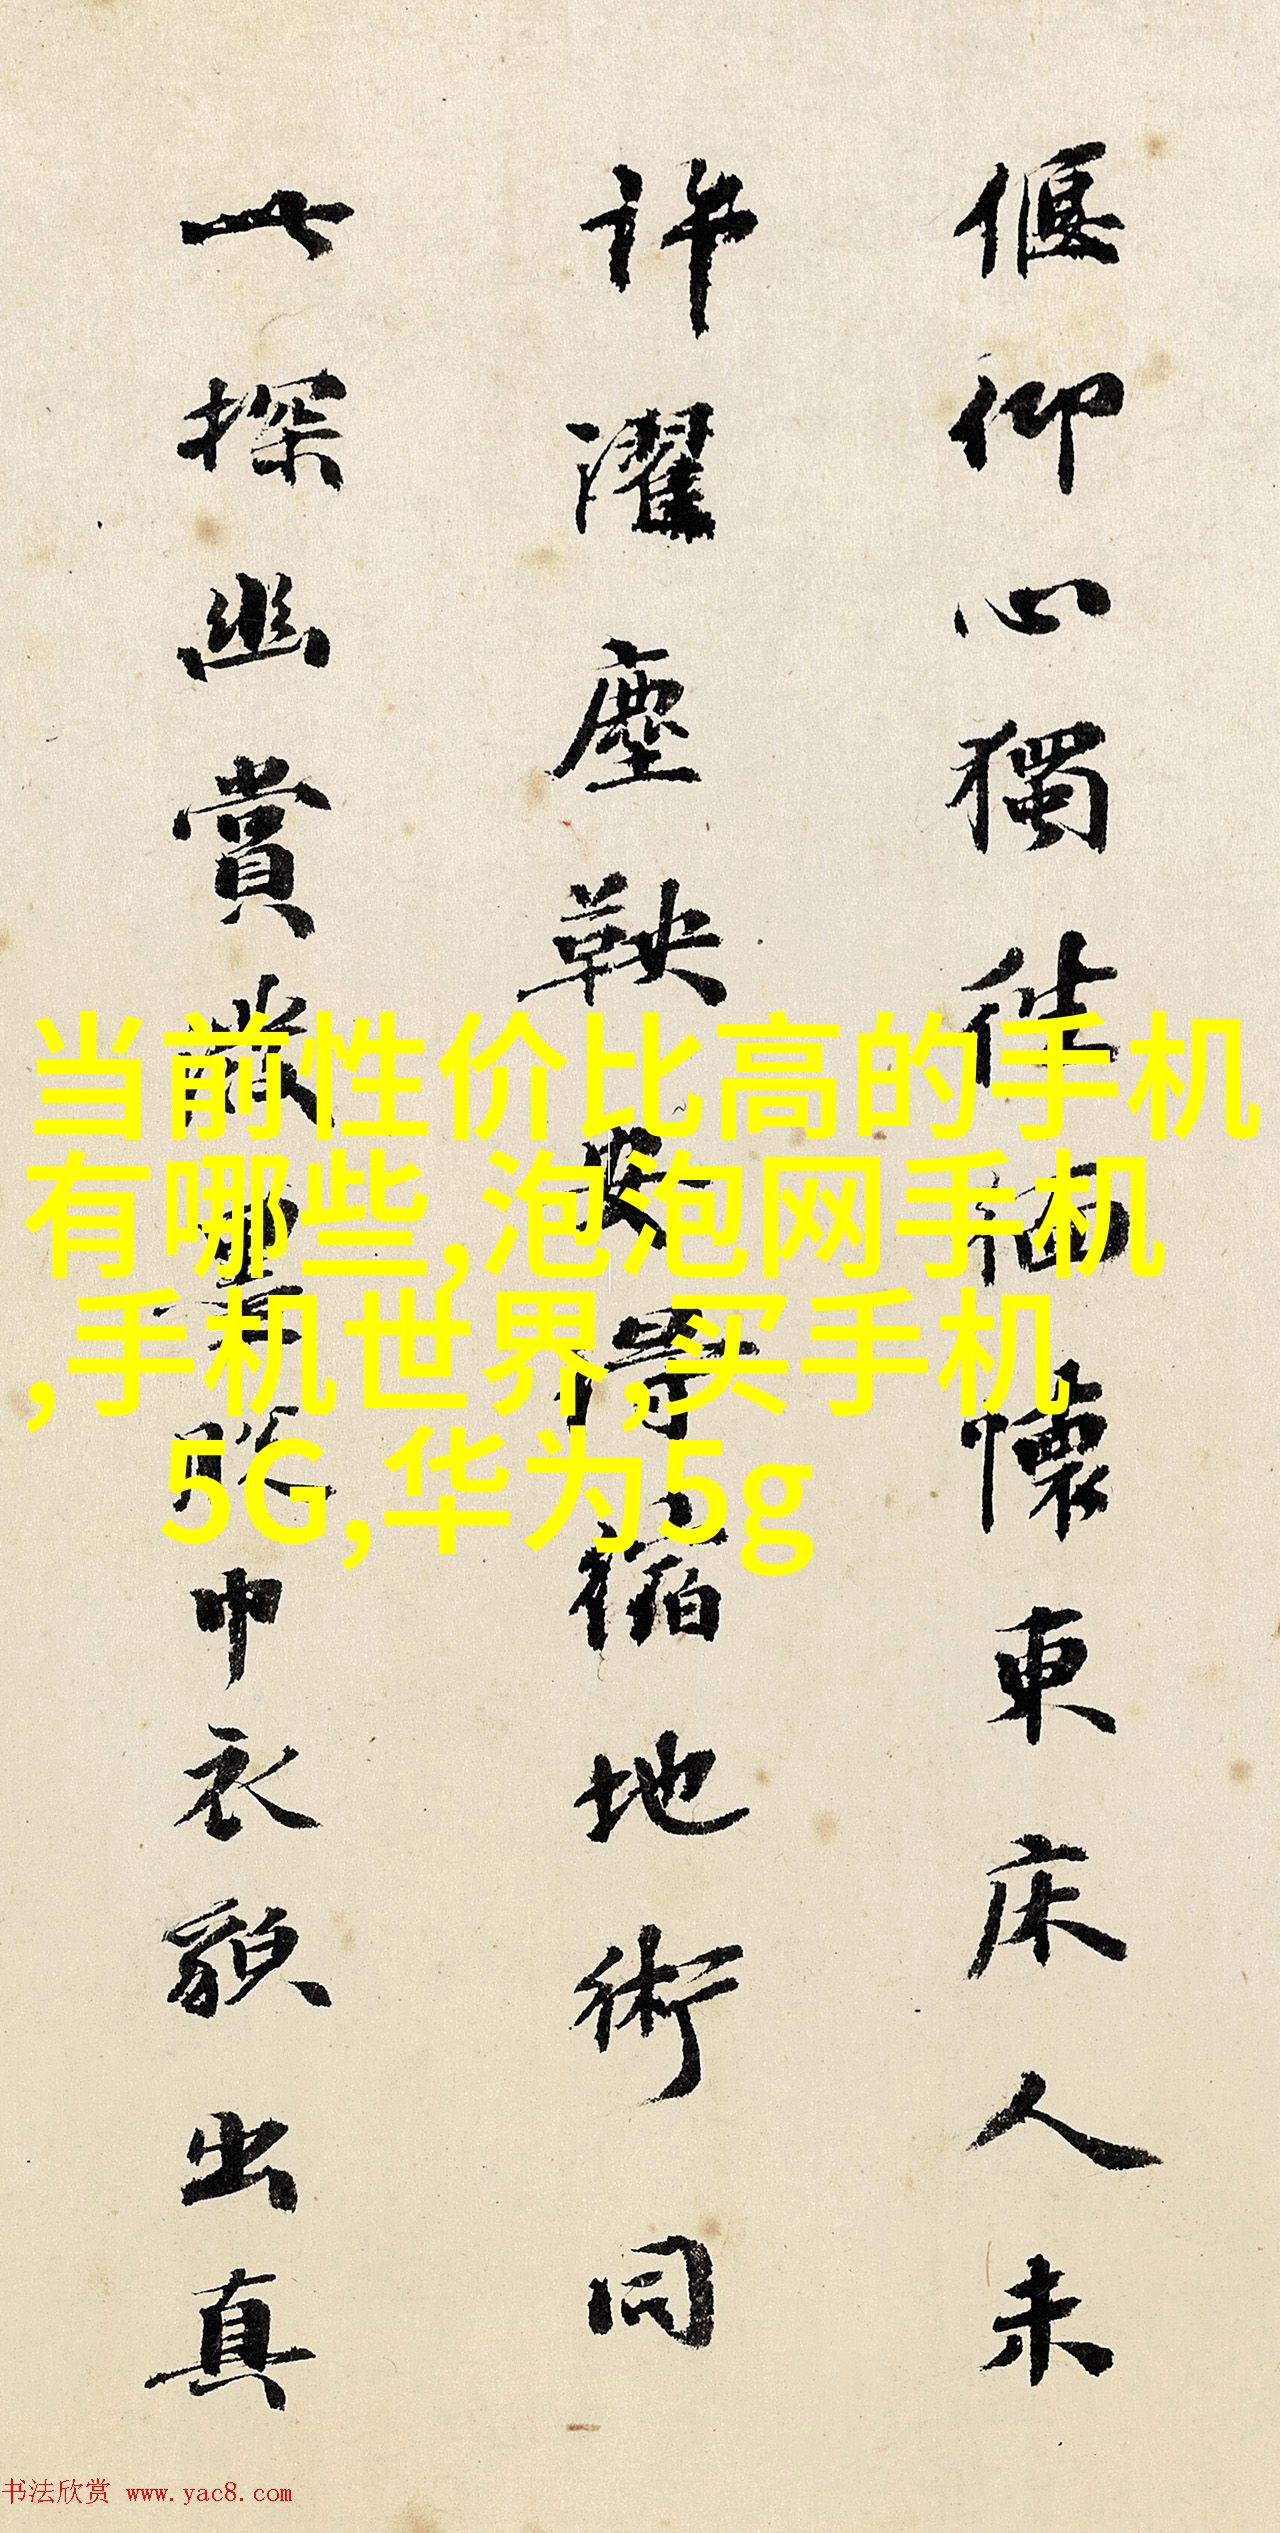 偃仰心獨往緬懷東床人未
許濯塵鞅安得縮地術同
此探幽賞巾衣出真
当前性价比高的手机
有哪些,泡泡网手机
,手机世界,买手机
5G,华为5g
书法欣赏 www.yac8.com